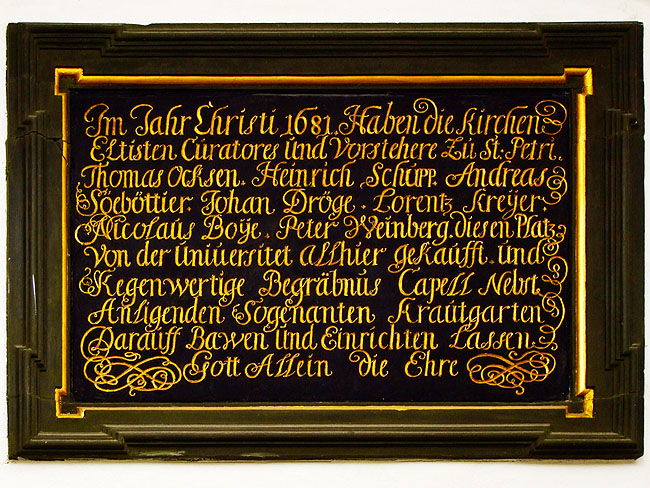 Im Jahr Christi 1681. Haben die Kirchen
Eltisten Curatores und Vorstehere Zu St. Petri.
Thomas Ocksen. Heinrich Schüpp. Andreas
Söeböttier. Johan Dröge. Lorentz Kreÿer.
Nicolaus Boÿe. Peter Weinberg. diesen Platz
Von der Uniuersitet allhier gekaufft. und
Kegenwertige Begräbnus Capell Nebst
Anligenden Sogenanten Krautgarten
Darauff Bawen und Einrichten Lassen
Gott Allein die Ehre